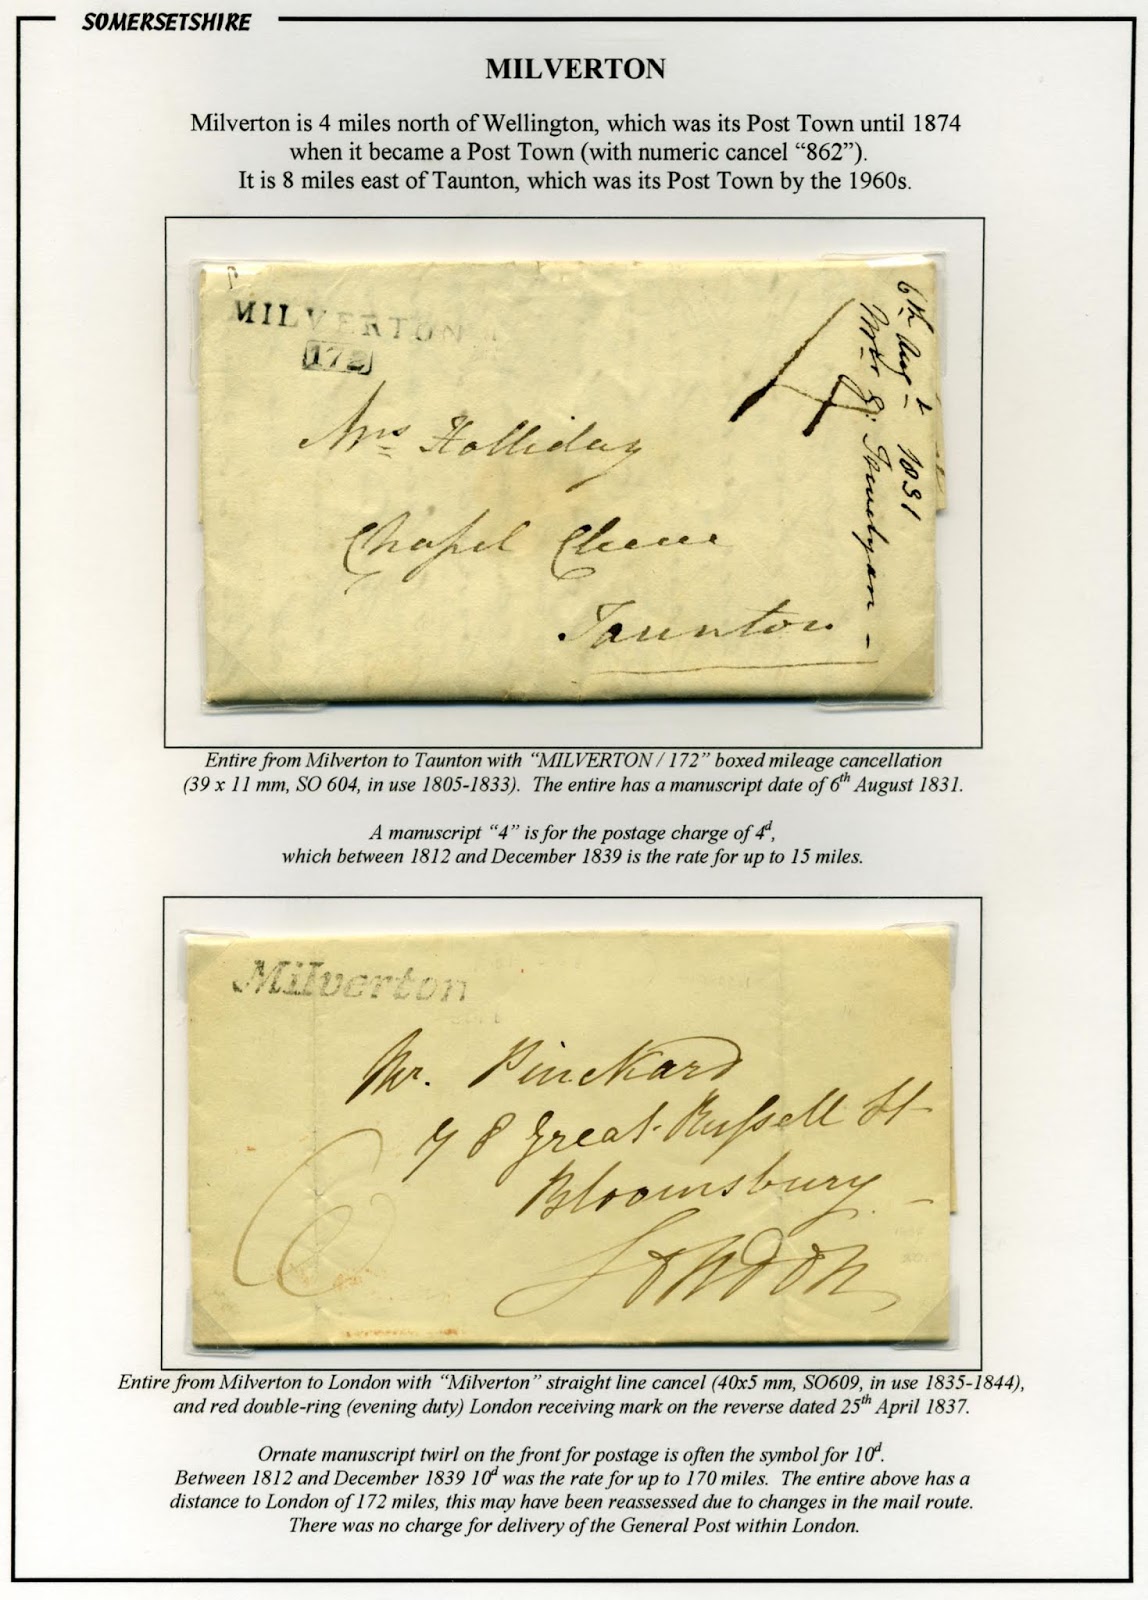 SOMERSETSHIRE
MILVERTON
Milverton is 4 miles north of Wellington, which was its Post Town until 1874
when it became a Post Town (with numeric cancel “862”).
It is 8 miles east of Taunton, which was its Post Town by the 1960s.
MILVERTON
172
4
6th Augt 1831
Mrs Holliday
Chapel Cleeve
Taunton
Entire from Milverton to Taunton with “MILVERTON / 172” boxed mileage cancellation
(39 x 11 mm, SO 604, in use 1805-1833). The entire has a manuscript date of 6th August 1831.
A manuscript “4” is for the postage charge of 4d,
which between 1812 and December 1839 is the rate for up to 15 miles.
Milverton
Mr. Pinckard
78 Great Russell St
Bloomsbury
London
Entire from Milverton to London with “Milverton” straight line cancel (40x5 mm, SO609, in use 1835-1844),
and red double-ring (evening duty) London receiving mark on the reverse dated 25th April 1837.
Ornate manuscript twirl on the front for postage is often the symbol for 10d.
Between 1812 and December 1839 10d was the rate for up to 170 miles. The entire above has a
distance to London of 172 miles, this may have been reassessed due to changes in the mail route.
There was no charge for delivery of the General Post within London.